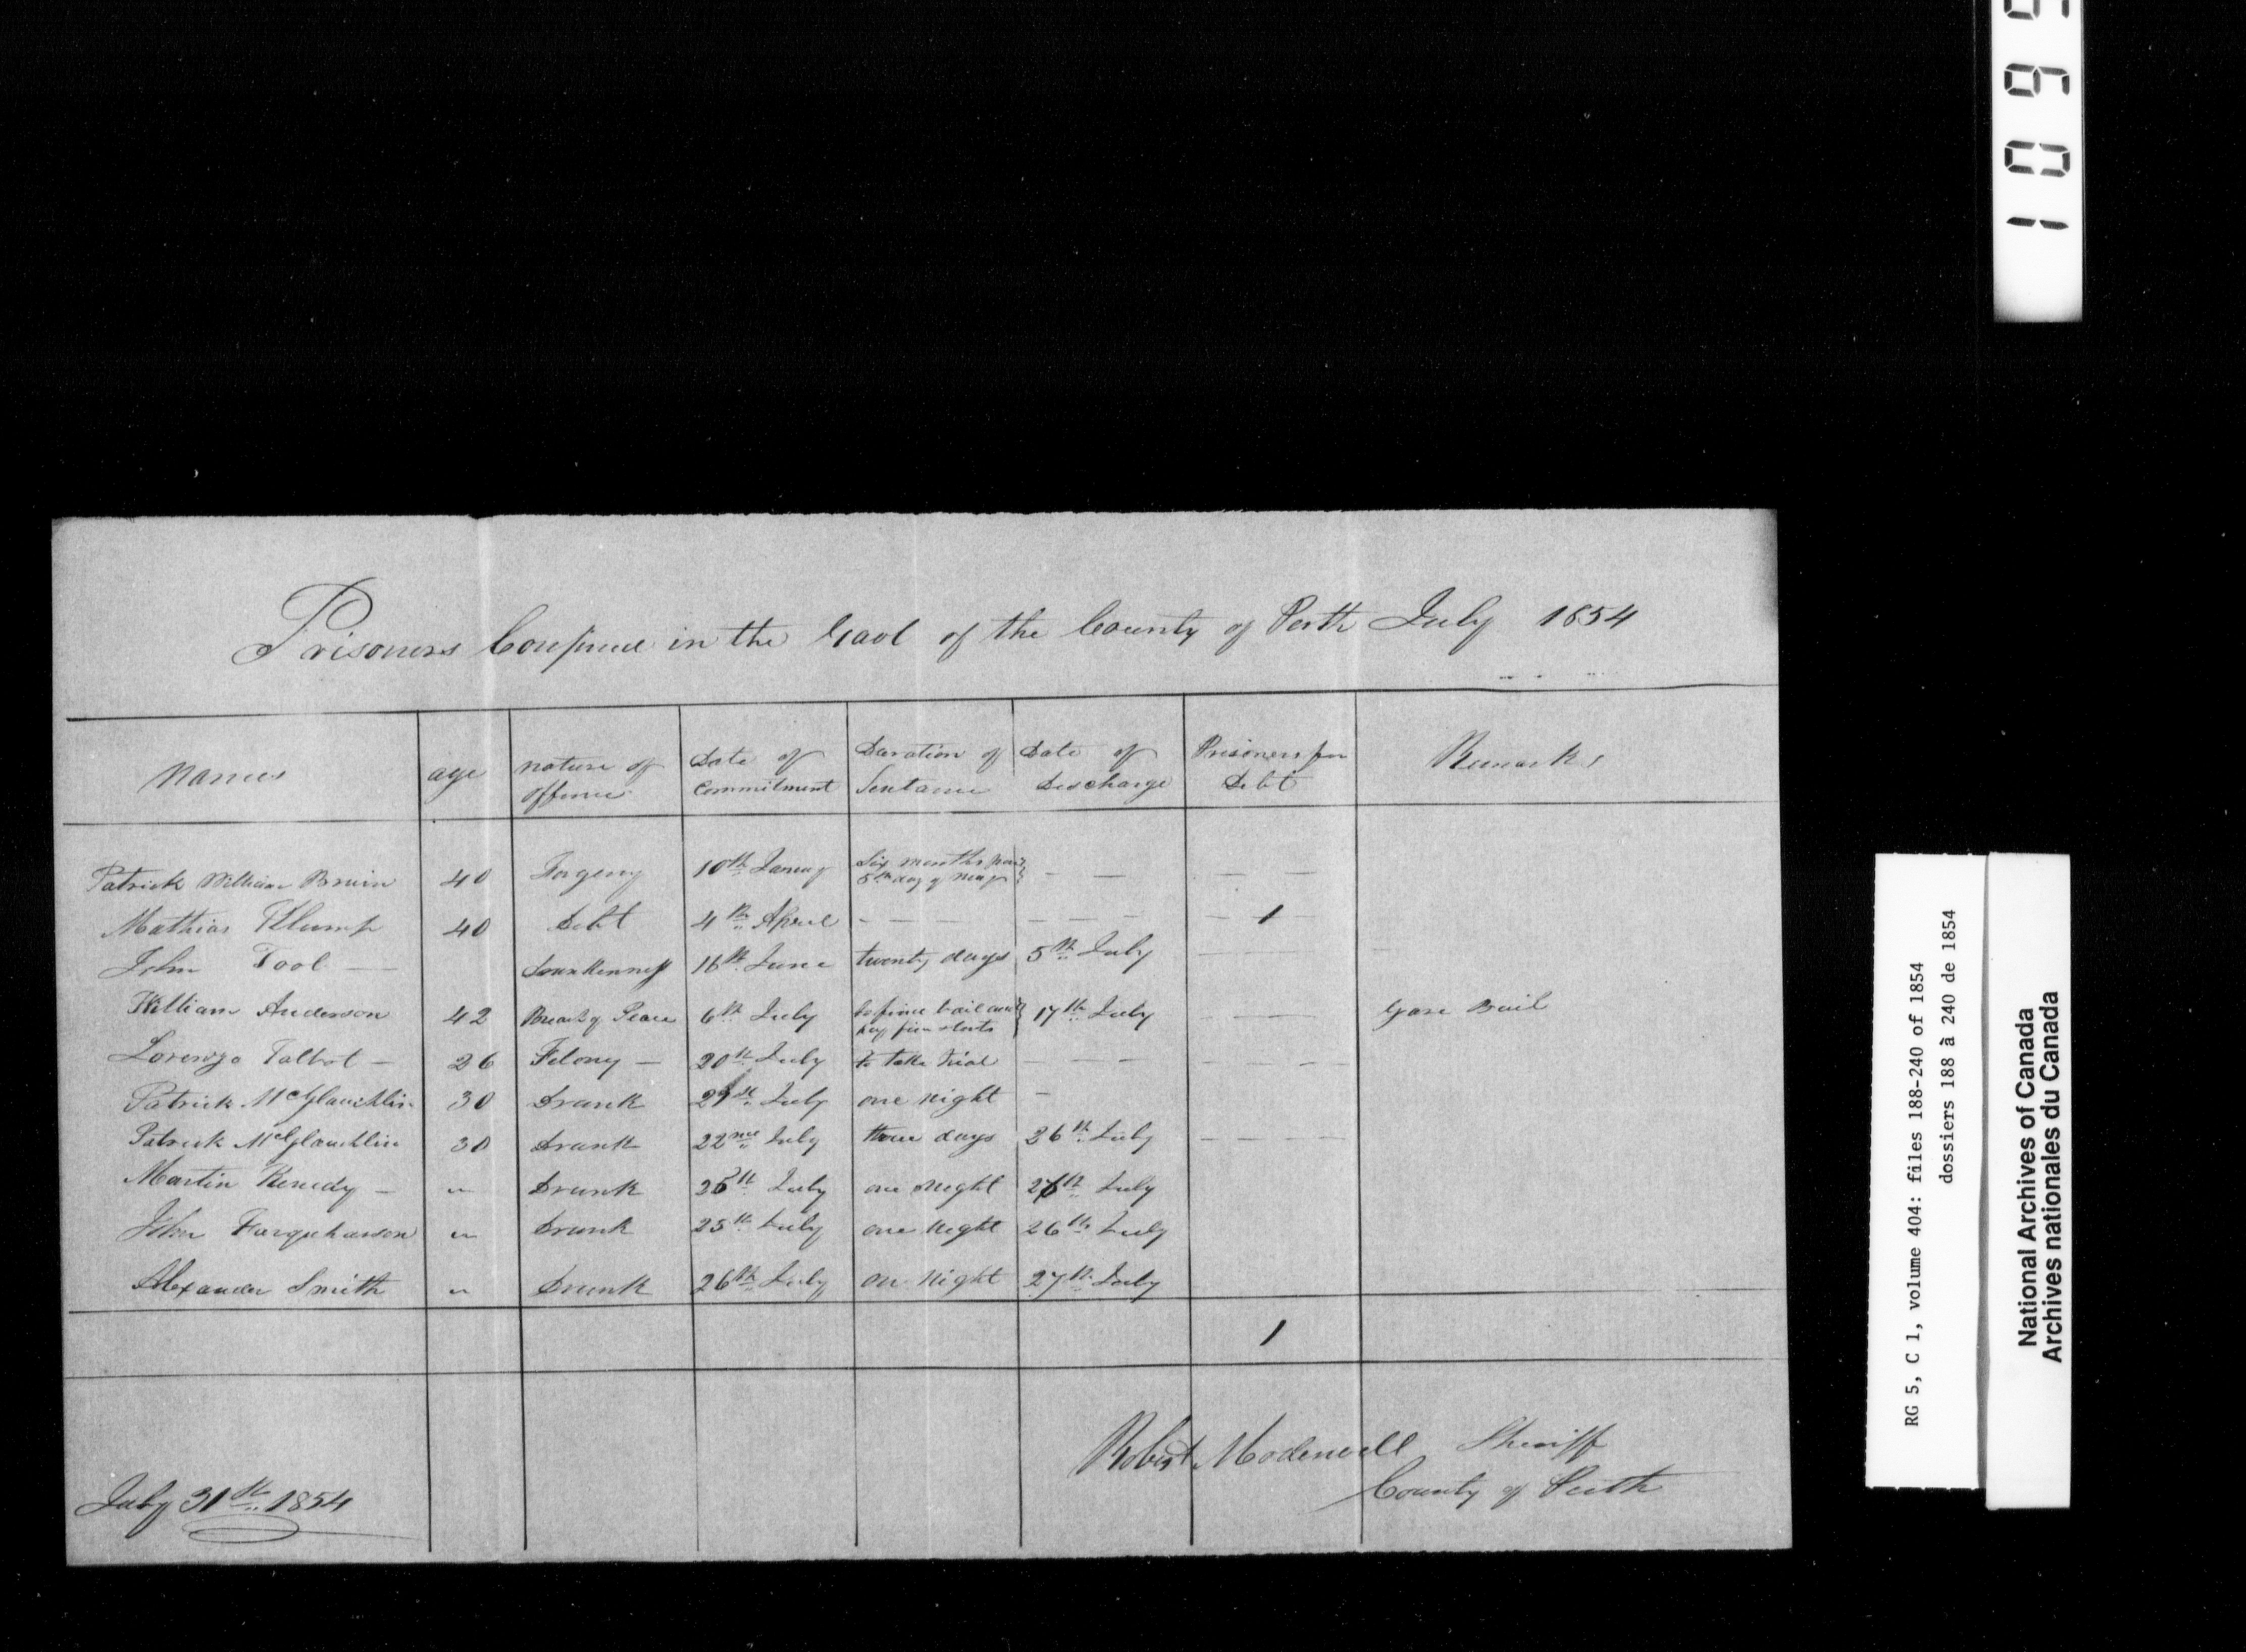 Prisoners Confined in the Gaol of the County of Perth July 1854
Names | age | nature of offence | Date of Commitment | Duration of Sentance | Date of Discharge | Prisoners for Debt | Remarks
Patrick William Bruin | 40 | Forgery | 10th Januay | Six months from 5th day of May | — — | — —
Mathias Klump | 40 | Debt | 4th April | - — — — | — — — | 1
John Tool — | Drunkenness | 16th June | twenty days | 5th July | — — —
William Anderson | 42 | Breach of Peace | 6th July | to find bail and pay fine & costs | 17th July | — — | Gave Bail
Lorenzo Talbot — | 26 | Felony — | 20th July | to take trial | — — — | — — —
Patrick McGlauchlin | 30 | Drunk | 21st July | one night | —
Patrick McGlauchlin | 30 | Drunk | 22nd July | three days | 26th July | — — — —
Martin Kenedy — | " | Drunk | 26th July | one night | 27th July
John Farquharson | " | Drunk | 25th July | one night | 26th July
Alexander Smith | " | Drunk | 26th July | one night | 27th July
1
Robert Moderwell Sheriff
County of Perth
July 31st 1854
1095
RG 5, C 1, volume 404: files 188-240 of 1854
dossiers 188 à 240 de 1854
National Archives of Canada
Archives nationales du Canada